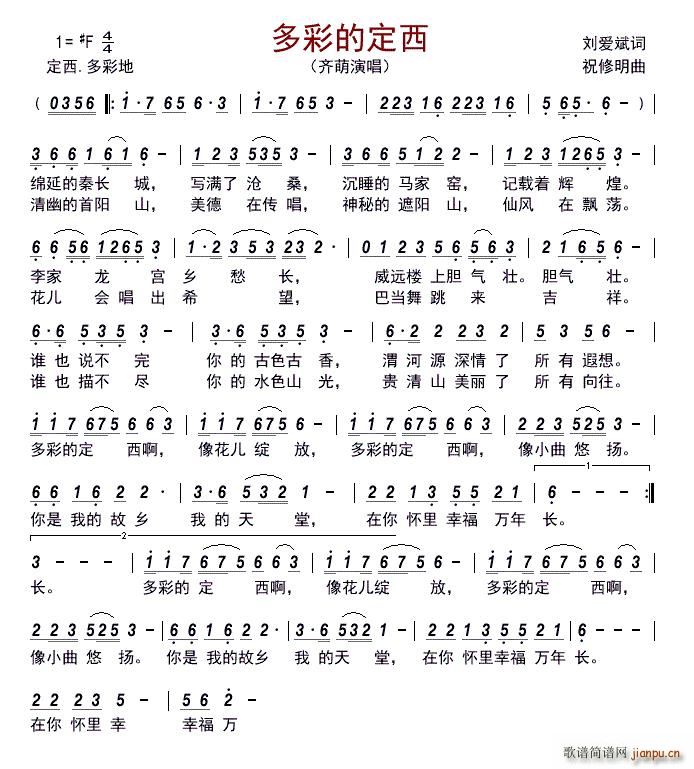 多彩的定西
1= #F 4/4
刘爱斌词
定西.多彩地
（齐萌演唱）
祝修明曲
( 0356 ‖: i·765 6·3 | i·765 3 - | 2231622316 | 5 65· 6 - )
3 6 6 1 61 6 - | 1 2 3 535 3 - | 3 6 6 5 12 2 - | 1 2 3 1265 3 -
绵延的秦长 城， 写满了 沧 桑， 沉睡的 马家 窑， 记载着 辉 煌。
清幽的首阳 山， 美德 在传 唱， 神秘的 遮阳 山， 仙风 在 飘 荡。
6 6 56 1265 3 | 1·2 3 53 23 - | 0 1 2 3 2 6 563 | 2 165 6 -
李家 龙 宫 乡 愁 长， 威远楼 上胆 气 壮。胆气 壮。
花儿 会 唱 出 希 望， 巴当舞 跳 来 吉 祥。
6·6 535 3 - | 3·6 535 3 - | 6·2 2 2 3 2 | 5 3 5 5 -
谁 也 说不 完 你 的 古色古 香， 渭 河 源 深情 了 所 有 遐想。
谁 也 描不 尽 你 的 水色山 光， 贵 清 山 美丽 了 所 有 向往。
i i 7 675 6 6 3 | i i 7 675 6 - | i i 7 675 6 6 3 | 2 2 3 525 3 -
多彩的定 西啊， 像花儿 绽 放， 多彩的定 西啊， 像小曲 悠 扬。
6 6 1 6 2 2 · | 3·6 532 1 - | 2 2 1 3 5 5 2 1 | 6 - - - :‖
1
你是 我的 故 乡 我 的 天 堂， 在你 怀里 幸福 万年 长。
2
3 - - - | i i 7 675 6 6 3 | i i 7 675 6 - | i i 7 675 6 6 3
长。 多彩的 定 西啊， 像花儿绽 放， 多彩的定 西啊，
2 2 3 525 3 - | 6 6 1 6 2 2 · | 3·6 532 1 - | 2 2 1 3 5 5 2 1 | 6 - - -
像小曲 悠 扬。 你是 我的故乡 我 的天 堂， 在你 怀里幸福 万年 长。
2 2 2 3 5 - | 5 6 2 -
在你 怀里 幸 幸福 万
歌谱简谱网
jianpu.cn